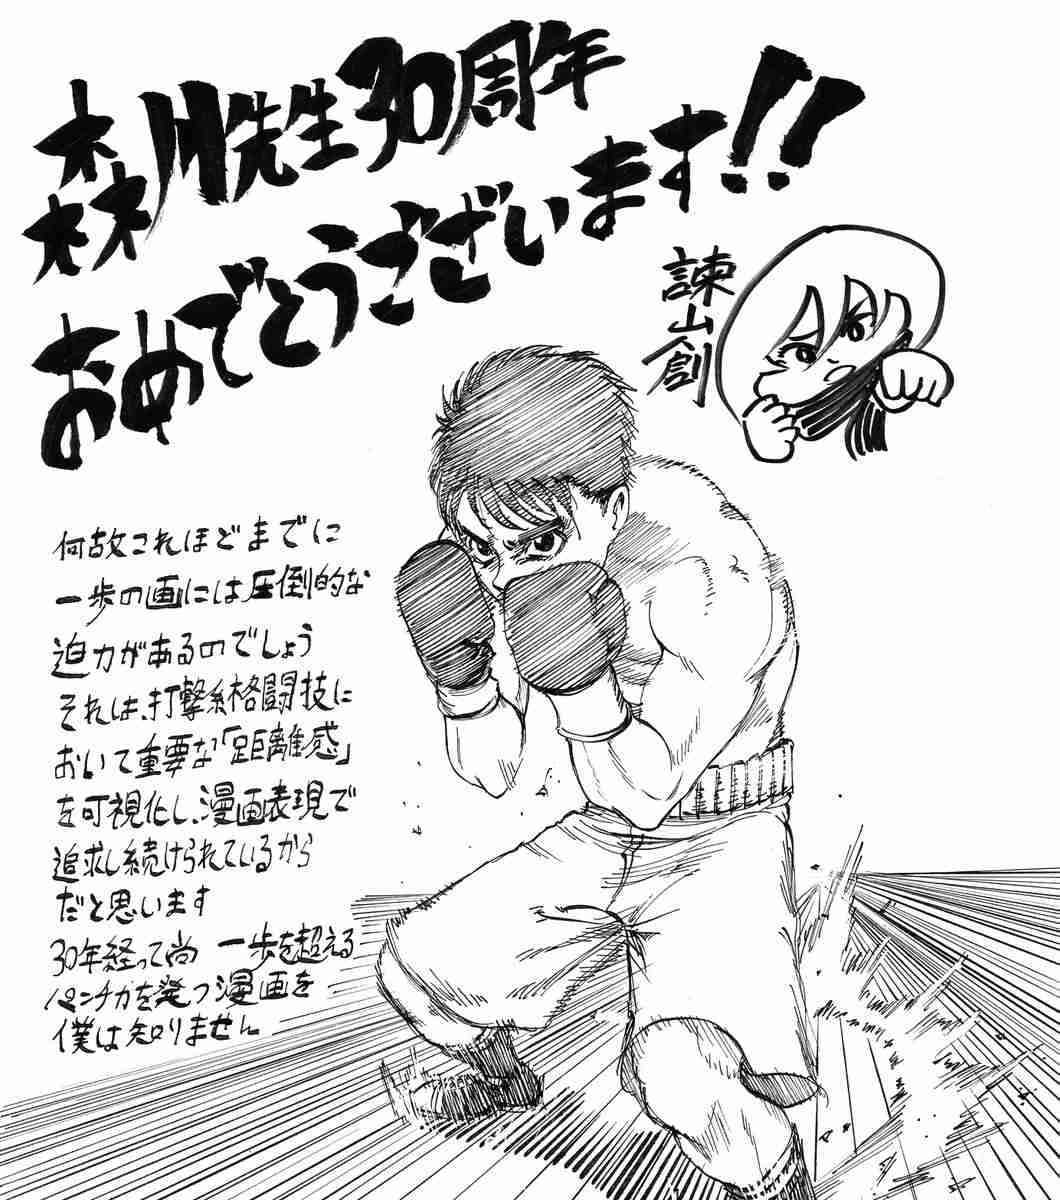 森川先生30周年
おめでとうございます!!
諫山創
何故これほどまでに
一歩の画には圧倒的な
迫力があるのでしょう
それは、打撃系格闘技に
おいて重要な「距離感」
を可視化し、漫画表現で
追求し続けられているから
だと思います
30年経って尚 一歩を超える
パンチ力を発つ漫画を
僕は知りません